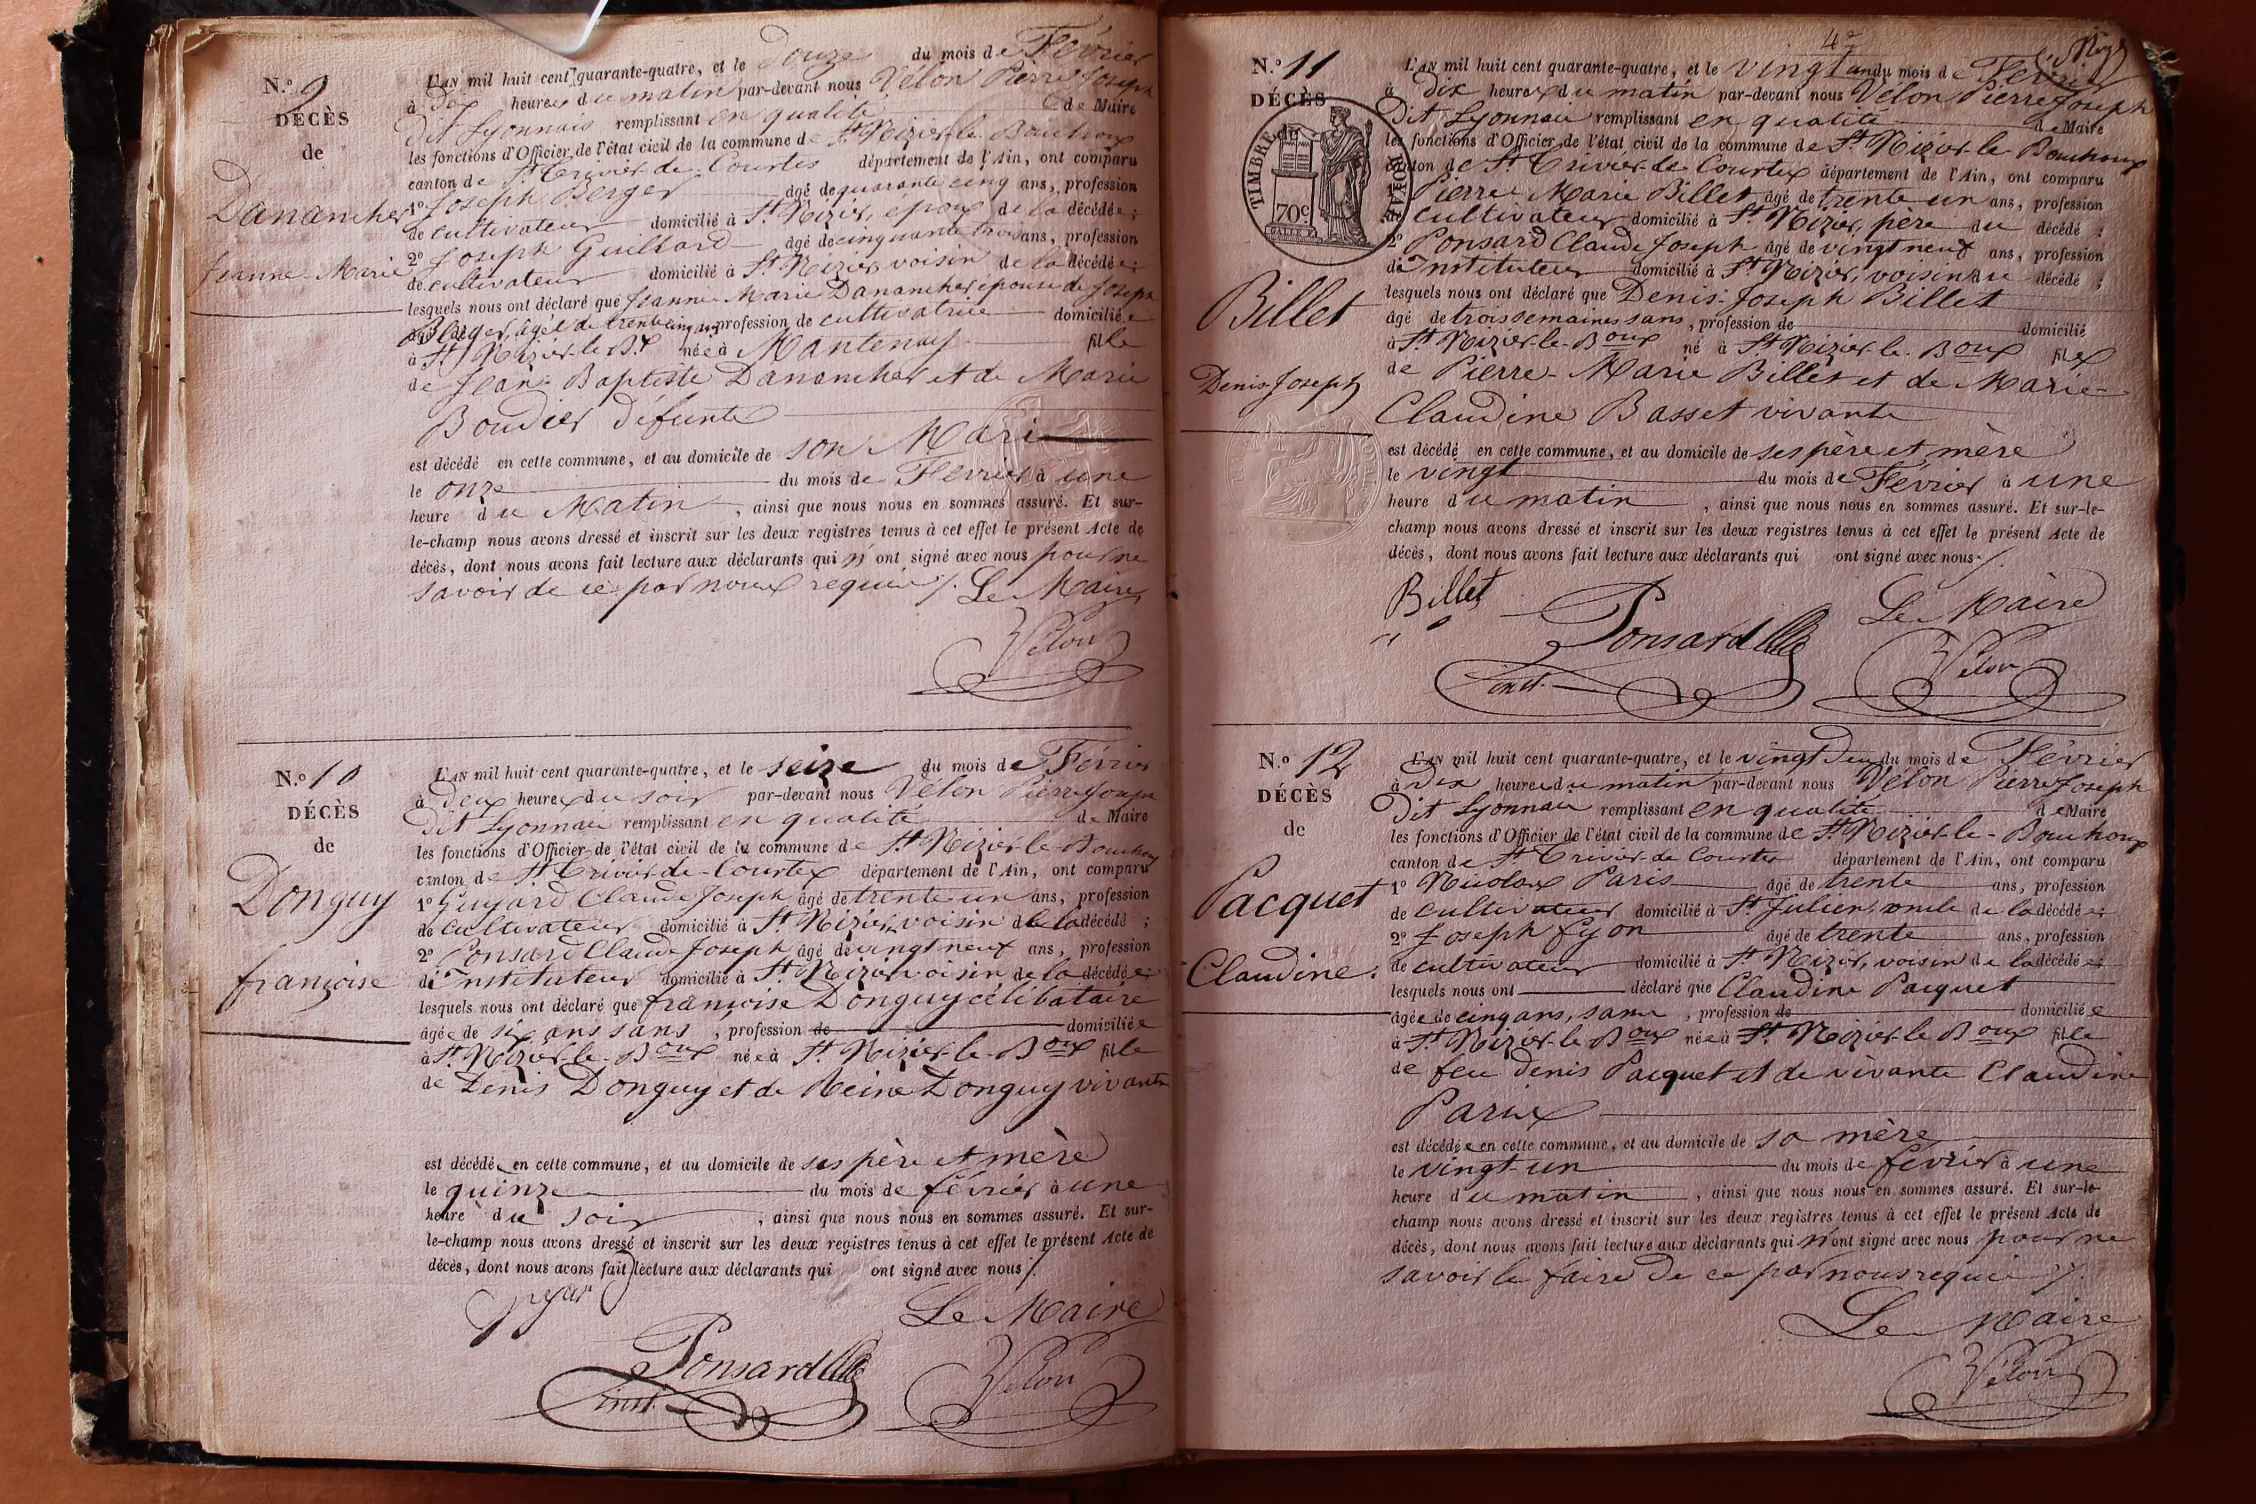 N.º 9
DÉCÈS
de
Danancher
Jeanne-Marie
L'AN mil huit cent quarante-quatre, et le Douze du mois de Février
à dix heures du matin par-devant nous Vélon Pierre Joseph
dit Lyonnais remplissant en qualité de Maire
les fonctions d'Officier de l'état civil de la commune de St Nizier-le-Bouchoux
canton de St Trivier-de-Courtes département de l'Ain, ont comparu
1º Joseph Berger âgé de quarante cinq ans, profession
de cultivateur domicilié à St Nizier, époux de la décédée;
2º Joseph Guillard âgé de cinquante trois ans, profession
de cultivateur domicilié à St Nizier voisin de la décédée;
lesquels nous ont déclaré que Jeanne Marie Danancher épouse de Joseph
Berger, âgée de trente cinq ans profession de cultivatrice domiciliée
à St Nizier-le-Bx née à Mantenay fille
de Jean-Baptiste Danancher et de Marie
Boudier défunte
est décédé en cette commune, et au domicile de son Mari
le onze du mois de Février à une
heure du Matin, ainsi que nous nous en sommes assuré. Et sur-
le-champ nous avons dressé et inscrit sur les deux registres tenus à cet effet le présent Acte de
décès, dont nous avons fait lecture aux déclarants qui n'ont signé avec nous pour ne
savoir de ce par nous requis /. Le Maire
Vélon
N.º 10
DÉCÈS
de
Donguy
françoise
L'AN mil huit cent quarante-quatre, et le seize du mois de Février
à deux heures du soir par-devant nous Vélon Pierre Joseph
dit Lyonnais remplissant en qualité de Maire
les fonctions d'Officier de l'état civil de la commune de St Nizier-le-Bouchoux
canton de St Trivier-de-Courtes département de l'Ain, ont comparu
1º Guyard Claude Joseph âgé de trente un ans, profession
de cultivateur domicilié à St Nizier, voisin de la décédé;
2º Ponsard Claude Joseph âgé de vingt neuf ans, profession
d'Instituteur domicilié à St Nizier voisin de la décédée;
lesquels nous ont déclaré que françoise Donguy célibataire
âgée de six ans sans, profession de domiciliée
à St Nizier-le-Boux née à St Nizier-le-Boux fille
de Denis Donguy et de Reine Donguy vivante
est décédé en cette commune, et au domicile de ses père et mère
le quinze du mois de février à une
heure du soir, ainsi que nous nous en sommes assuré. Et sur-
le-champ nous avons dressé et inscrit sur les deux registres tenus à cet effet le présent Acte de
décès, dont nous avons fait lecture aux déclarants qui ont signé avec nous /.
Le Maire
Ponsard
inst.
Vélon
4e
N.º 11
DÉCÈS
TIMBRE ROYAL
70c
Billet
Denis-Joseph
L'AN mil huit cent quarante-quatre, et le vingt un du mois de Février
à dix heures du matin par-devant nous Vélon Pierre Joseph
dit Lyonnais remplissant en qualité de Maire
les fonctions d'Officier de l'état civil de la commune de St Nizier-le-Bouchoux
canton de St Trivier-de-Courtes département de l'Ain, ont comparu
Pierre Marie Billet âgé de trente un ans, profession
cultivateur domicilié à St Nizier, père du décédé;
2º Ponsard Claude Joseph âgé de vingt neuf ans, profession
d'Instituteur domicilié à St Nizier, voisin du décédé;
lesquels nous ont déclaré que Denis-Joseph Billet
âgé de trois semaines sans, profession de domicilié
à St Nizier-le-Boux né à St Nizier-le-Boux fils
de Pierre-Marie Billet et de Marie-
Claudine Basset vivante
est décédé en cette commune, et au domicile de ses père et mère
le vingt du mois de Février à une
heure du matin, ainsi que nous nous en sommes assuré. Et sur-le-
champ nous avons dressé et inscrit sur les deux registres tenus à cet effet le présent Acte de
décès, dont nous avons fait lecture aux déclarants qui ont signé avec nous /.
Billet
Le Maire
Ponsard
inst.
Vélon
N.º 12
DÉCÈS
de
Pacquet
Claudine.
L'AN mil huit cent quarante-quatre, et le vingt deux du mois de Février
à dix heures du matin par-devant nous Vélon Pierre Joseph
dit Lyonnais remplissant en qualité de Maire
les fonctions d'Officier de l'état civil de la commune de St Nizier-le-Bouchoux
canton de St Trivier-de-Courtes département de l'Ain, ont comparu
1º Nicolas Paris âgé de trente ans, profession
de cultivateur domicilié à St Julien, oncle de la décédée;
2º Joseph Lyon âgé de trente ans, profession
de cultivateur domicilié à St Nizier, voisin de la décédée
lesquels nous ont déclaré que Claudine Pacquet
âgée de cinq ans, sans, profession de domiciliée
à St Nizier-le-Boux née à St Nizier-le-Boux fille
de feu Denis Pacquet et de vivante Claudine
Paris
est décédée en cette commune, et au domicile de sa mère
le vingt-un du mois de février à une
heure du matin, ainsi que nous nous en sommes assuré. Et sur-le-
champ nous avons dressé et inscrit sur les deux registres tenus à cet effet le présent Acte de
décès, dont nous avons fait lecture aux déclarants qui n'ont signé avec nous pour ne
savoir le faire de ce par nous requis /.
Le Maire
Vélon